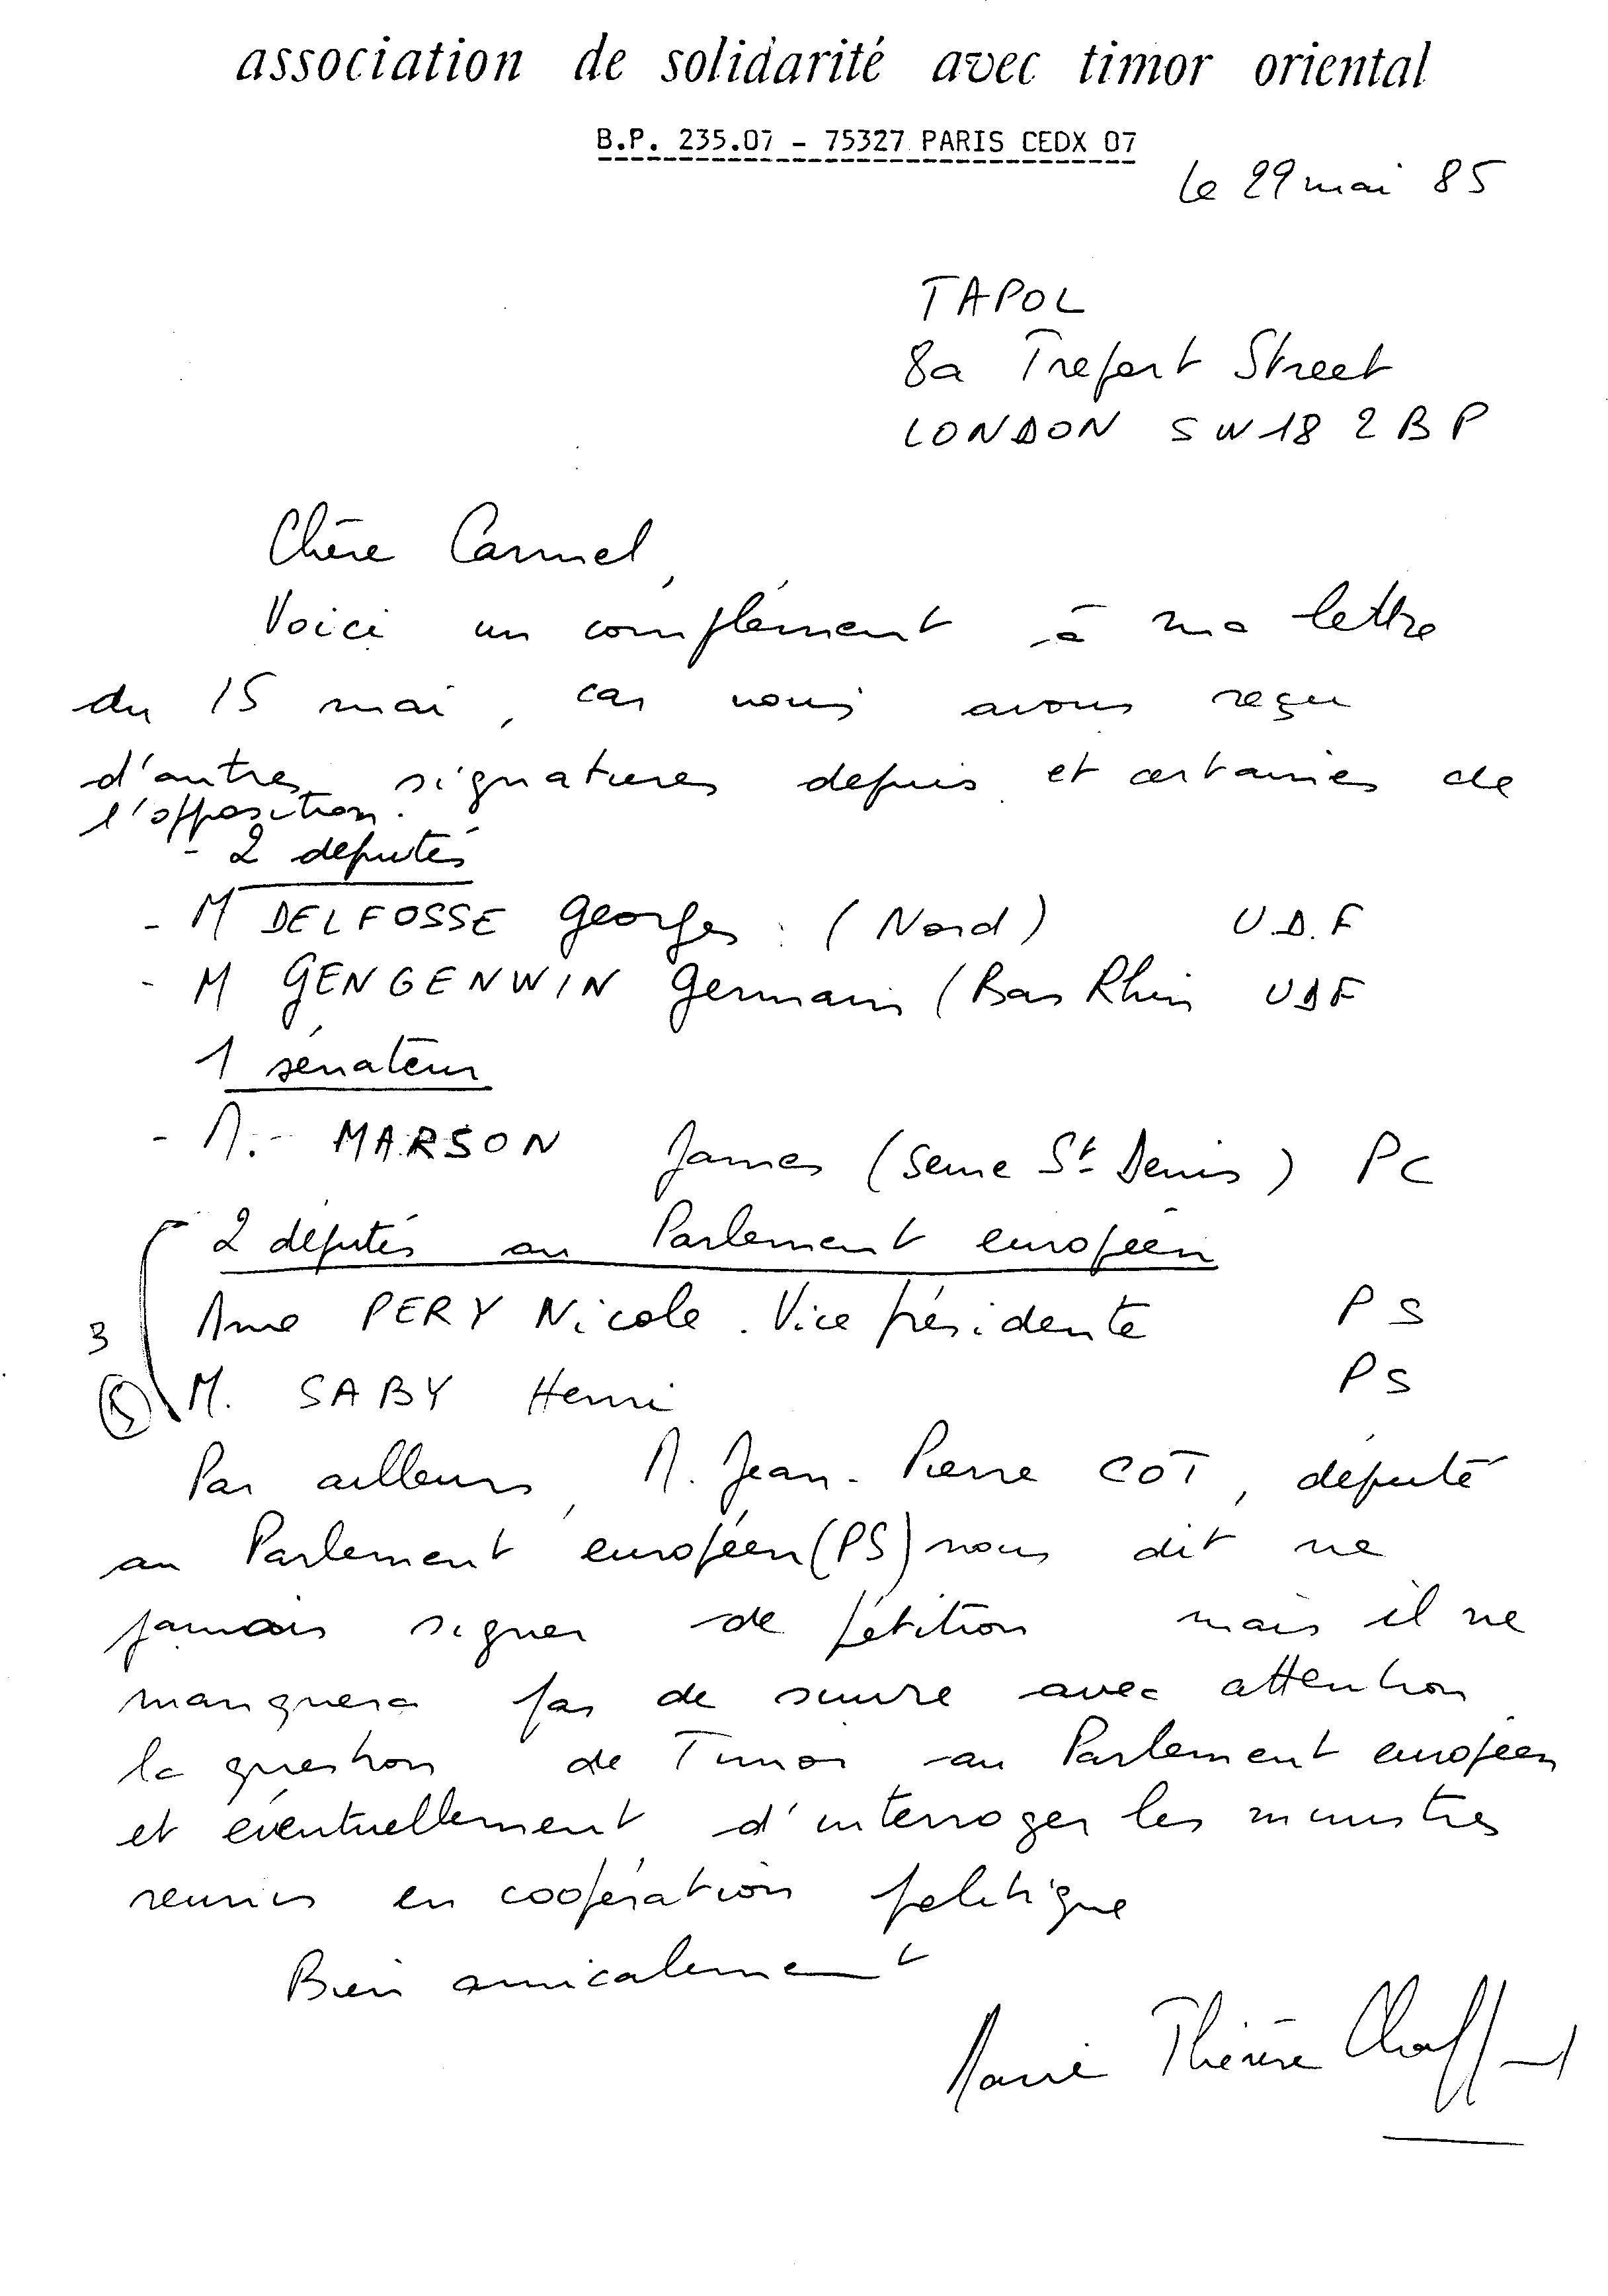 association de solidarité avec timor oriental
B.P. 235.07 - 75327 PARIS CEDX 07
le 29 mai 85
TAPOL
8a Trefort Street
LONDON SW18 2BP
Chère Carmel,
Voici un complément à ma lettre
du 15 mai, car nous avons reçu
d'autres signatures depuis et certaines de
l'opposition.
- 2 députés
- M DELFOSSE Georges : (Nord) U.D.F
- M GENGENWIN Germain (Bas Rhin UDF
1 sénateur
- M. - MARSON James (Seine St Denis) PC
2 députés au Parlement européen
Mme PERY Nicole. Vice présidente PS
3
M. SABY Henri PS
5
Par ailleurs, M. Jean-Pierre COT, député
au Parlement européen (PS) nous dit ne
jamais signer de pétition mais il ne
manquera pas de suivre avec attention
la question de Timor au Parlement européen
et éventuellement d'interroger les ministres
réunis en coopération politique
Bien amicalement
Marie Thérèse